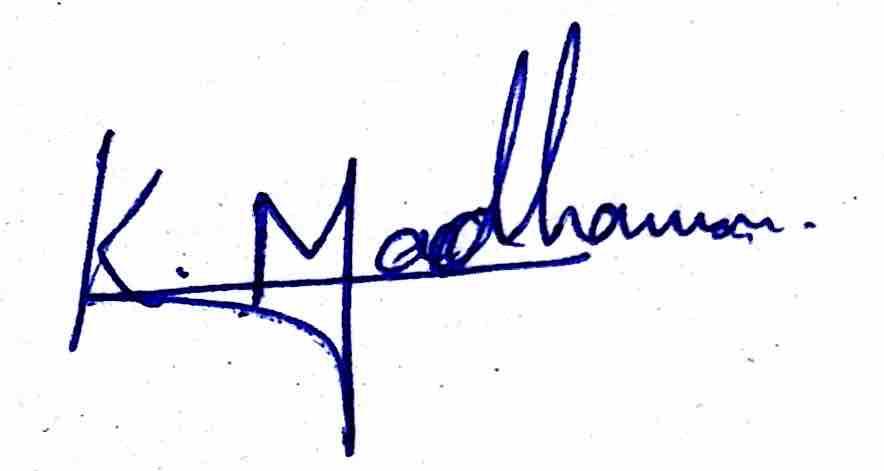 K. Madhavan.